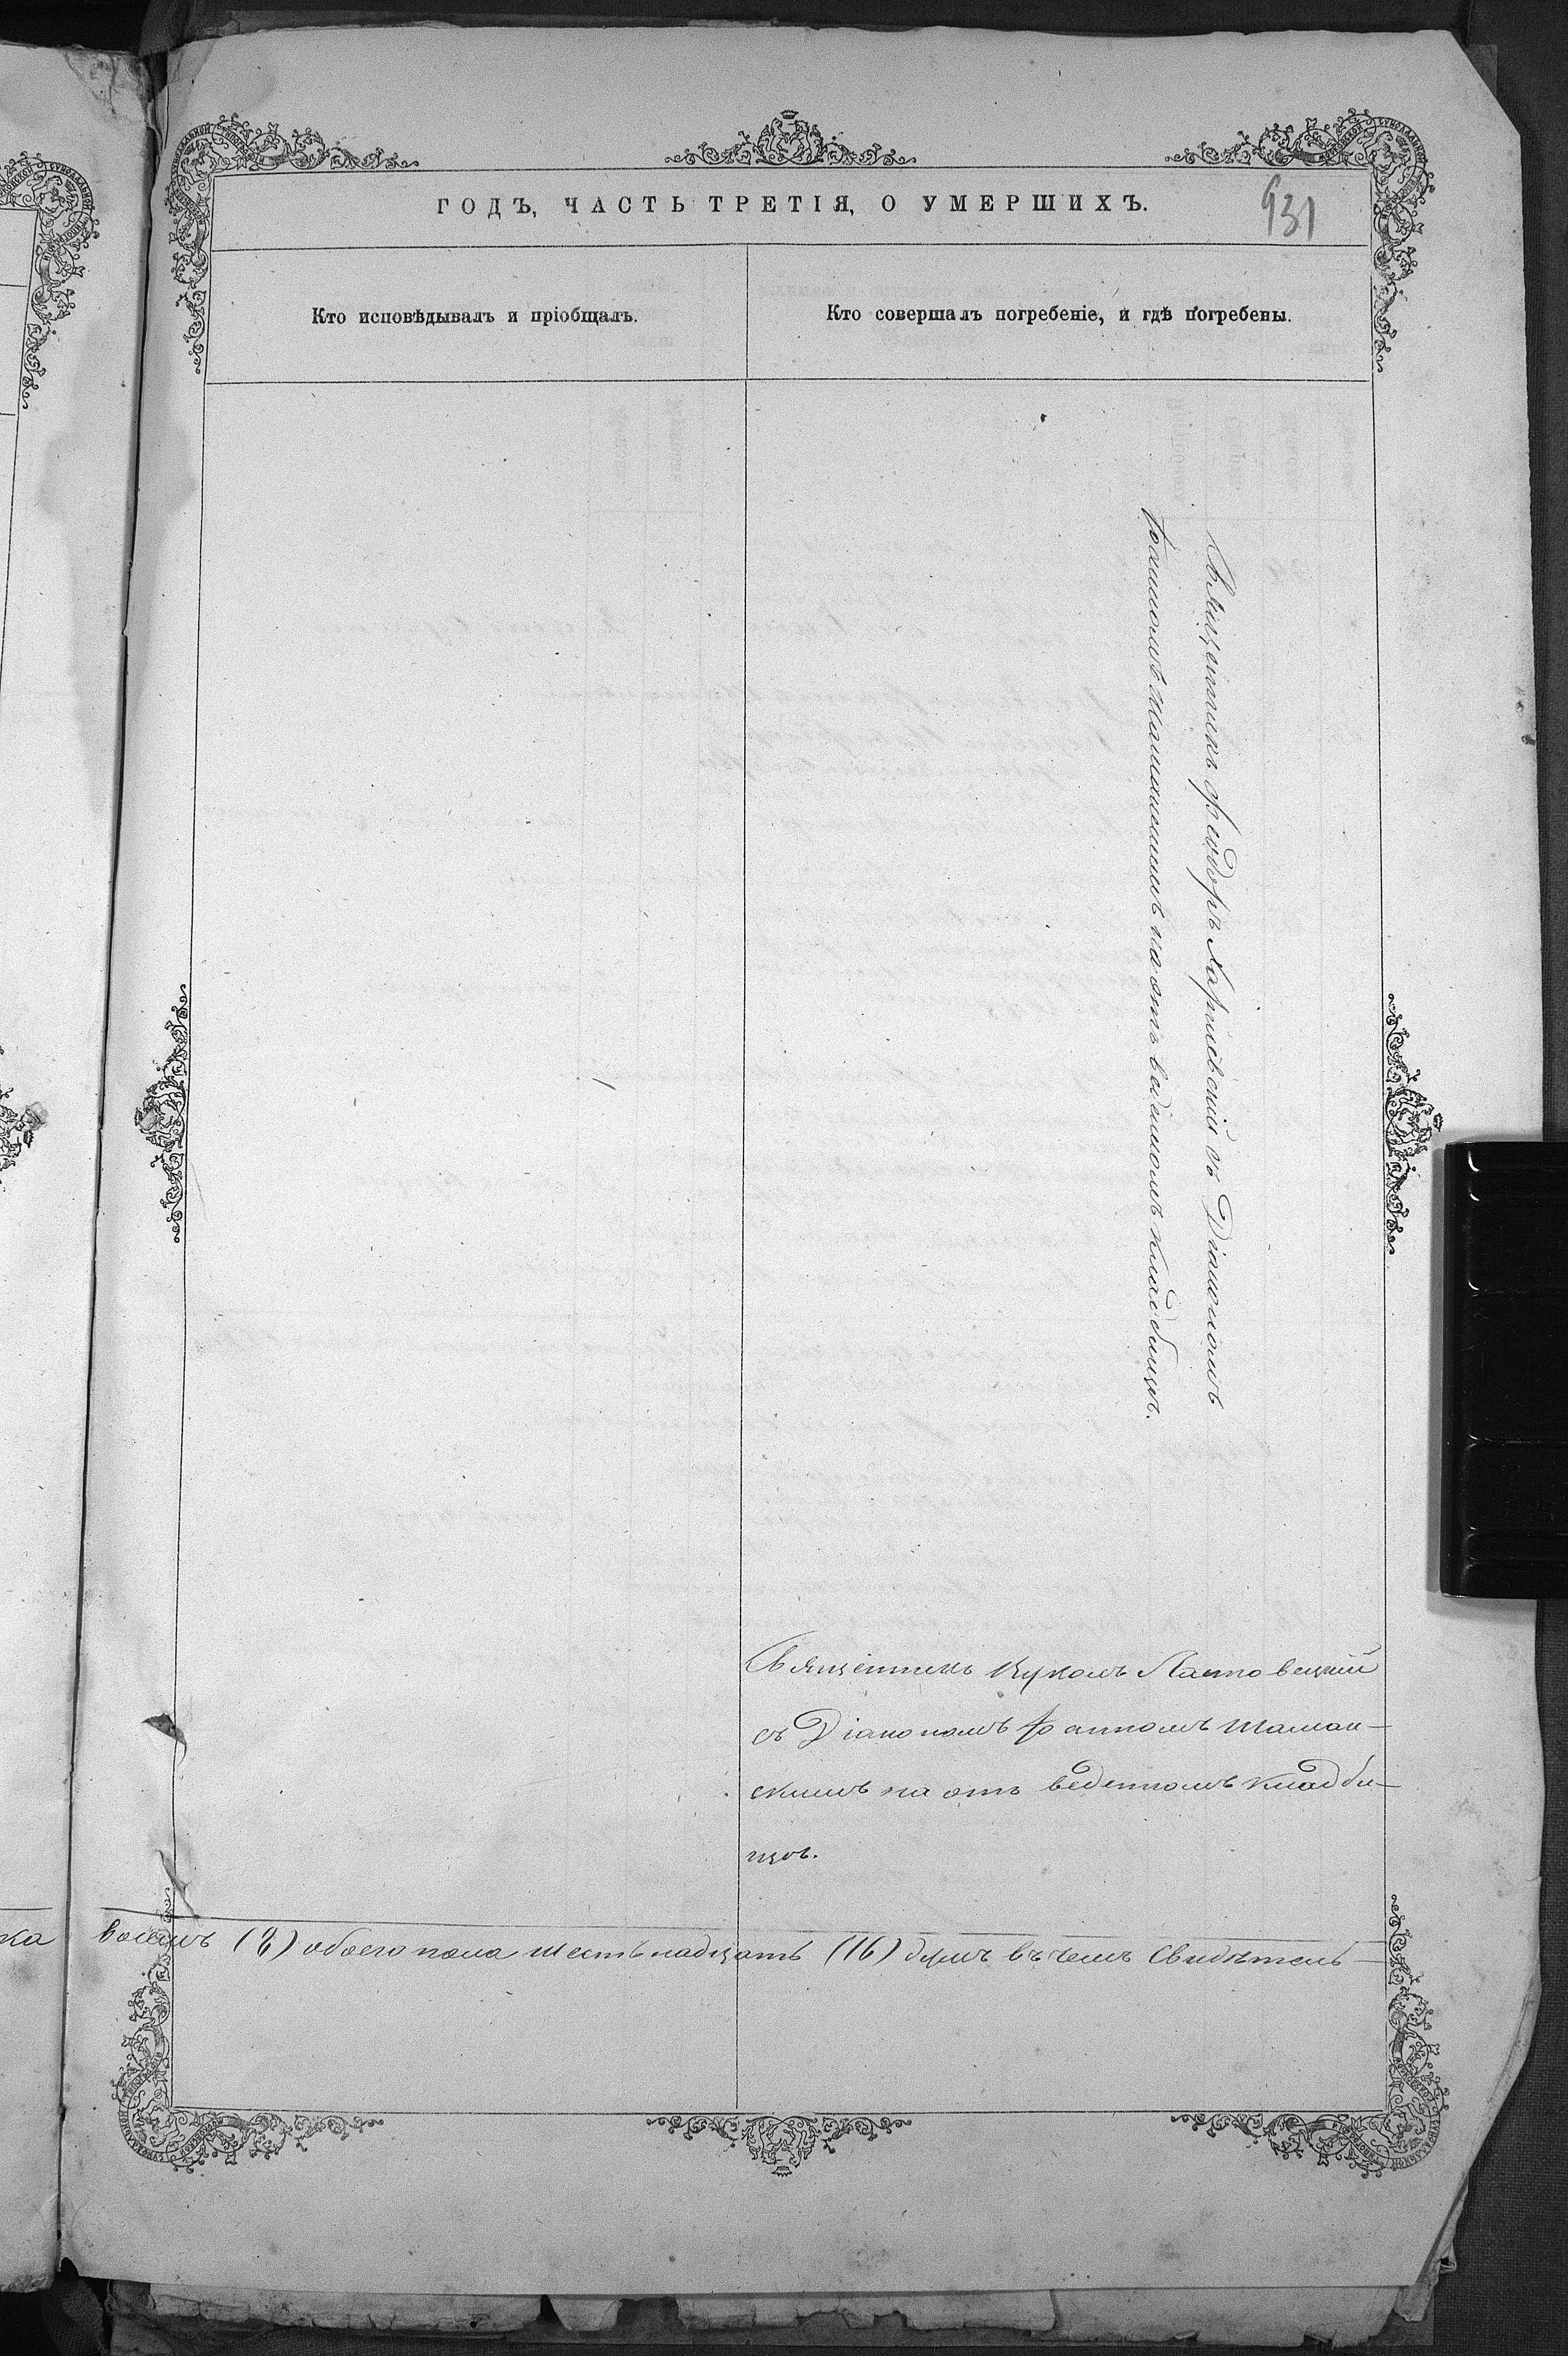 ГОДЪ, ЧАСТЬ ТРЕТІЯ, О УМЕРШИХЪ.
931
Кто исповѣдывалъ и пріобщалъ.
Кто совершалъ погребеніе, и гдѣ погребены.
Священникъ Феодоръ съ Діакономъ
Іоанномъ Шаманскимъ на отъ веденномъ кладбищѣ.
Священникъ Лукомъ
съ Діакономъ Іоанномъ Шаман-
скимъ на отъ веденномъ кладби-
щѣ.
ка восемь (8) обоего пола шестьнадцать (16) душъ въ чемъ свидѣтель-